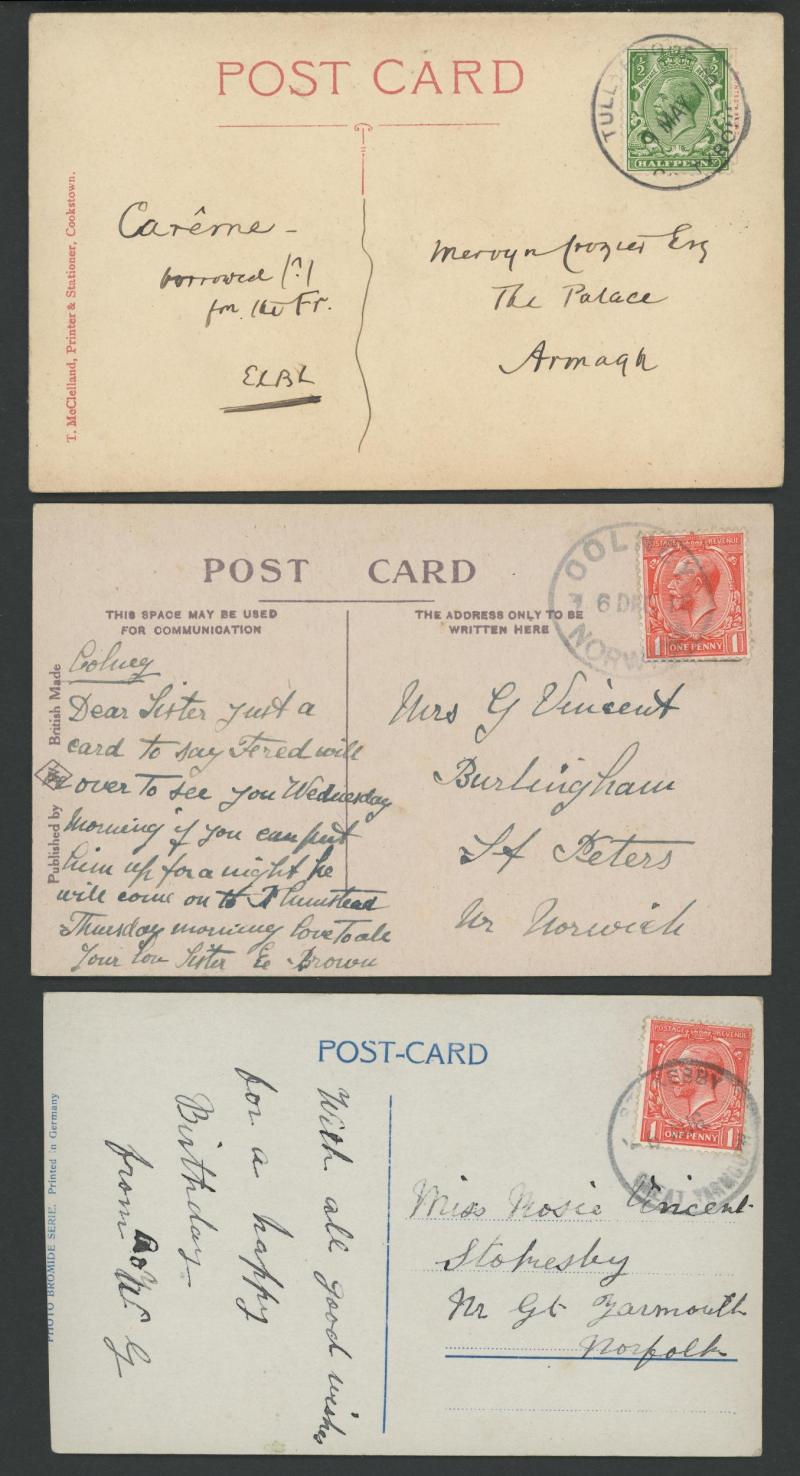 POST CARD
½ ½
HALFPENNY
MAY
T. McClelland, Printer & Stationer, Cookstown.
Carême -
borrowed (?)
for the Fr.
ELBL
Mervyn Crozier Esq
The Palace
Armagh
POST CARD
THIS SPACE MAY BE USED
FOR COMMUNICATION
THE ADDRESS ONLY TO BE
WRITTEN HERE
POSTAGE REVENUE
1 ONE PENNY 1
Published by British Made
Colney
Dear Sister just a
card to say Fered will
over to see you Wednesday
Morning if you can put
him up for a night he
will come on to Plumstead
Thursday morning love to all
Your Lov Sister E Brown
Mrs G Vincent
Burlingham
St Peters
Nr Norwich
POST-CARD
POSTAGE REVENUE
1 ONE PENNY 1
GREAT YARMOUTH
PHOTO BROMIDE SERIE. Printed in Germany
With all good wishes
for a happy
Birthday
from
W G
Miss Rosie Vincent
Stokesby
Nr Gt Yarmouth
Norfolk